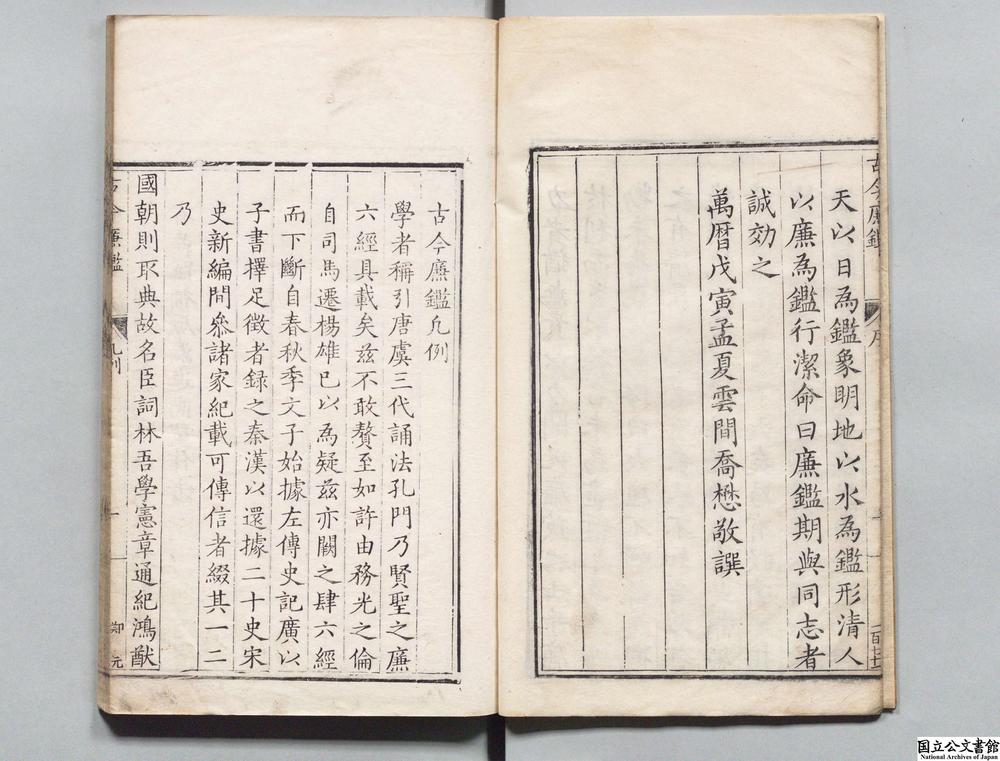 天以日為鑑象明地以水為鑑形清人
以廉為鑑行潔命曰廉鑑期與同志者
誠効之
萬曆戊寅孟夏雲間喬懋敬譔
古今廉鑑
序
古今廉鑑凡例
學者稱引唐虞三代誦法孔門乃賢聖之廉
六經具載矣茲不敢贅至如許由務光之倫
自司馬遷楊雄已以為疑茲亦闕之肆六經
而下斷自春秋季文子始據左傳史記廣以
子書擇足徵者録之秦漢以還據二十史宋
史新編間叅諸家紀載可傳信者綴其一二
乃
國朝則取典故名臣詞林吾學憲章通紀鴻猷
古今廉鑑
凡例
一
元
国立公文書館
National Archives of Japan